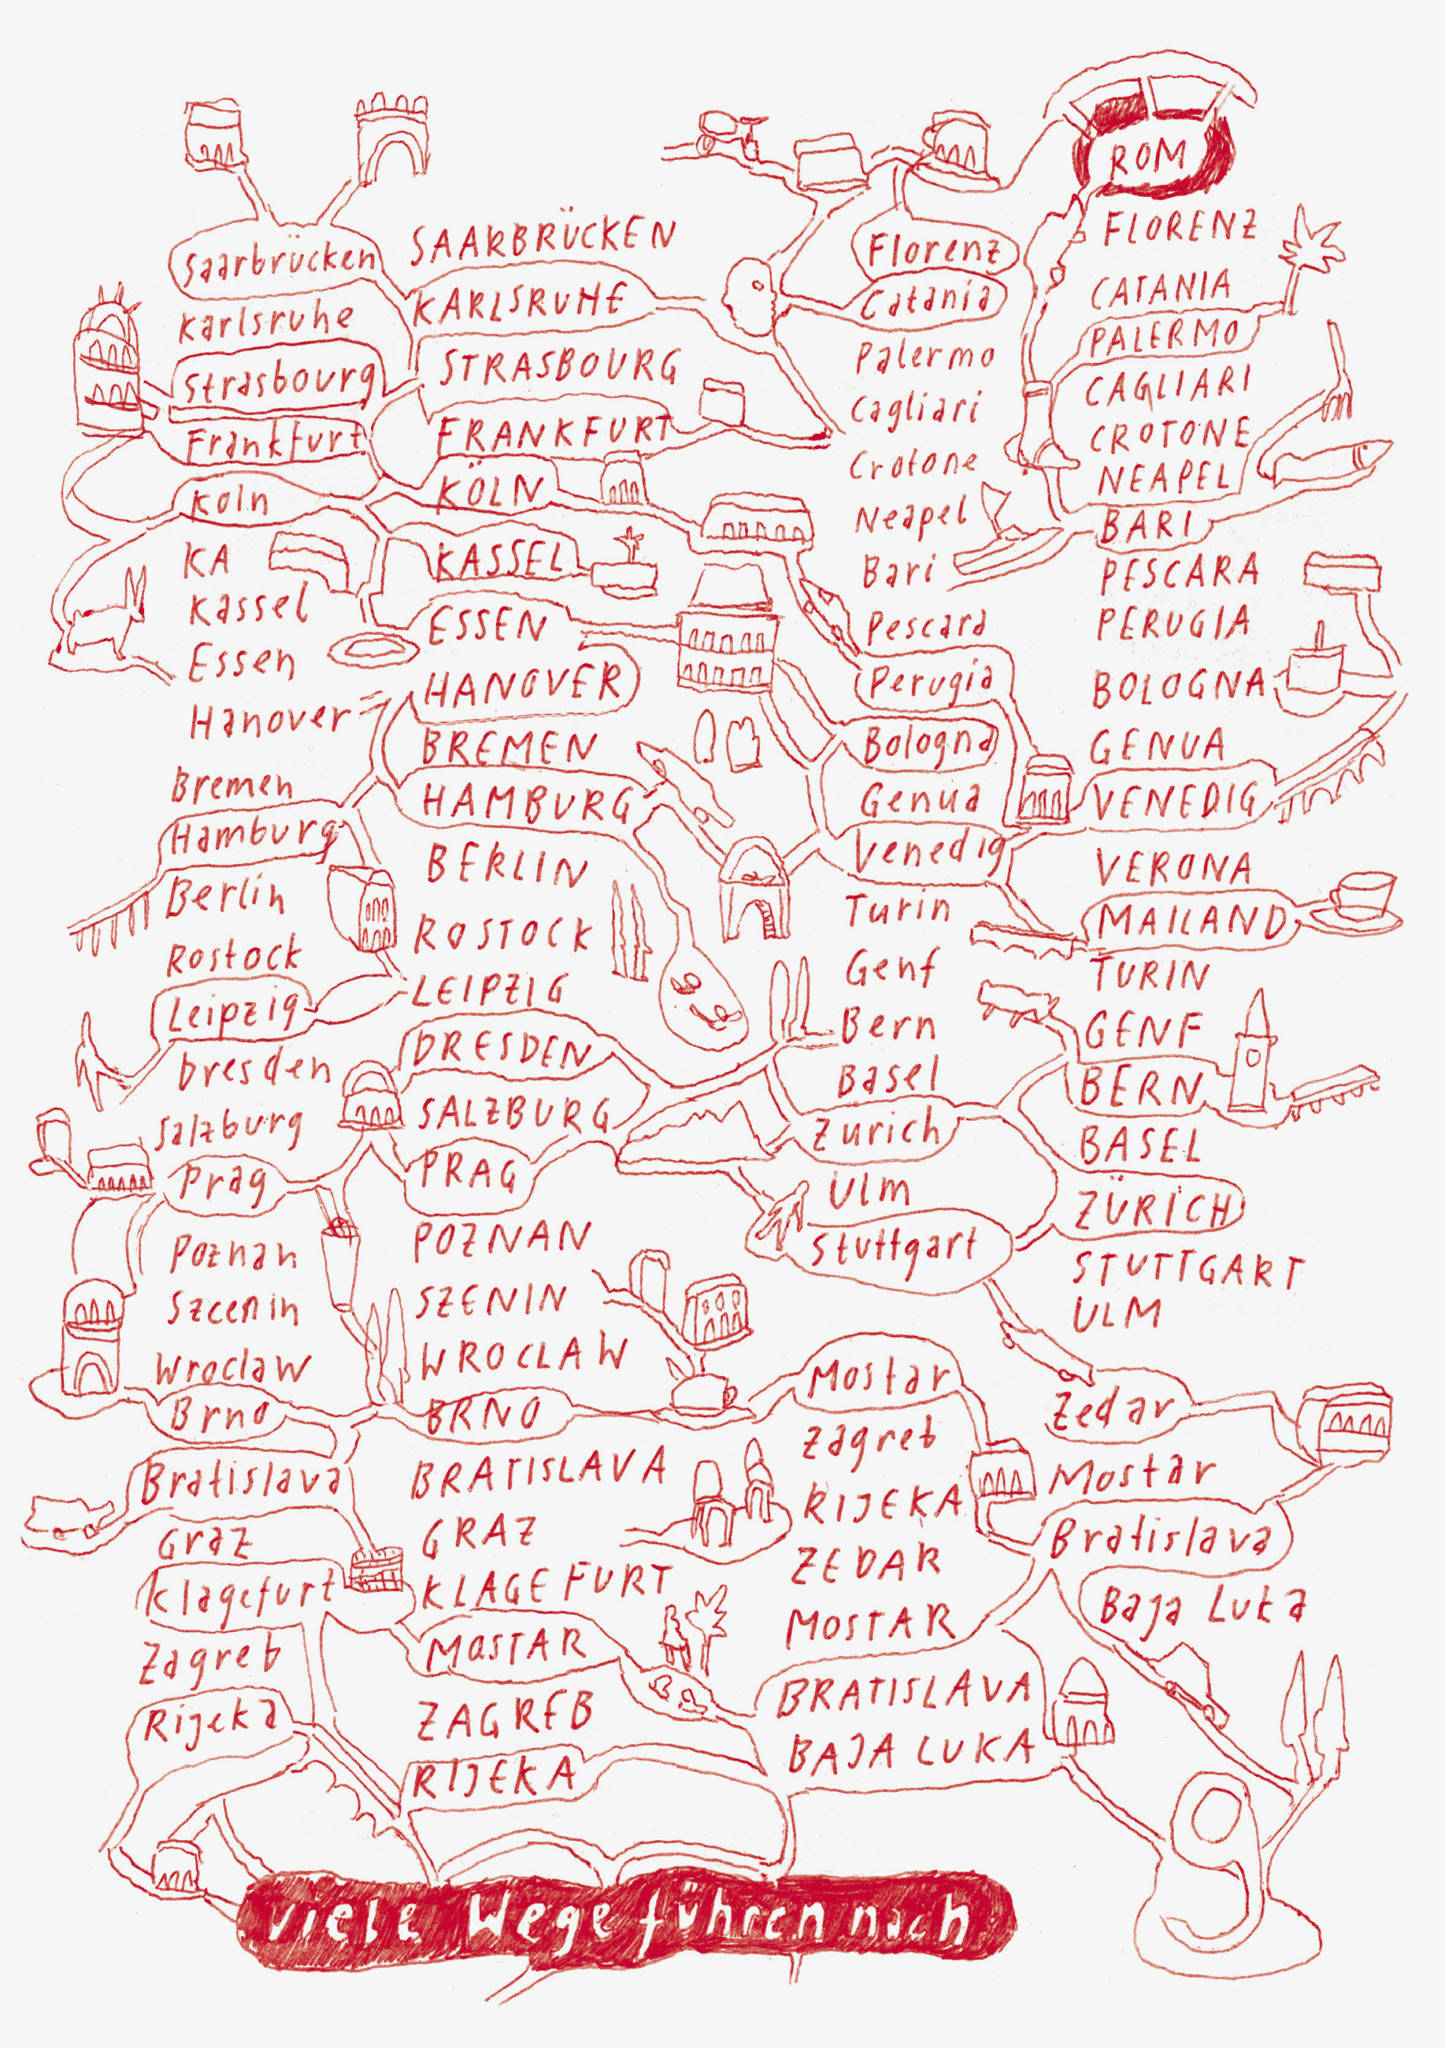 Saarbrücken
Karlsruhe
Strasbourg
Frankfurt
Köln
KA
Kassel
Essen
Hanover
Bremen
Hamburg
Berlin
Rostock
Leipzig
Dresden
Salzburg
Prag
Poznan
Szcenin
Wroclaw
Brno
Bratislava
Graz
Klagefurt
Zagreb
Rijeka
SAARBRÜCKEN
KARLSRUHE
STRASBOURG
FRANKFURT
KÖLN
KASSEL
ESSEN
HANOVER
BREMEN
HAMBURG
BERLIN
ROSTOCK
LEIPZIG
DRESDEN
SALZBURG
PRAG
POZNAN
SZENIN
WROCLAW
BRNO
BRATISLAVA
GRAZ
KLAGEFURT
MOSTAR
ZAGREB
RIJEKA
Florenz
Catania
Palermo
Cagliari
Crotone
Neapel
Bari
Pescara
Perugia
Bologna
Genua
Venedig
Turin
Genf
Bern
Basel
Zurich
Ulm
Stuttgart
Mostar
Zagreb
RIJEKA
ZEDAR
MOSTAR
BRATISLAVA
BAJA LUKA
ROM
FLORENZ
CATANIA
PALERMO
CAGLIARI
CROTONE
NEAPEL
BARI
PESCARA
PERUGIA
BOLOGNA
GENUA
VENEDIG
VERONA
MAILAND
TURIN
GENF
BERN
BASEL
ZÜRICH
STUTTGART
ULM
Zedar
Mostar
Bratislava
Baja Luka
viele Wege führen nach